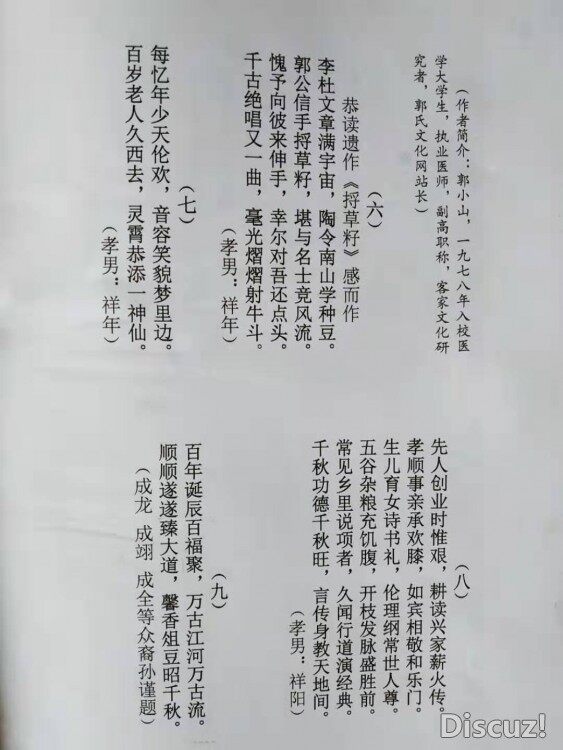 (作者简介：郭小山，一九七八年入校医
学大学生，执业医师，副高职称，客家文化研
究者，郭氏文化网站长)
(六)
恭读遗作《捋草籽》感而作
李杜文章满宇宙，陶令南山学种豆。
郭公信手捋草籽，堪与名士竞风流。
愧予向彼来伸手，幸尔对吾还点头。
千古绝唱又一曲，毫光熠熠射牛斗。
(孝男：祥年)
(七)
每忆年少天伦欢，音容笑貌梦里边。
百岁老人久西去，灵霄恭添一神仙。
(孝男：祥年)
(八)
先人创业时惟艰，耕读兴家薪火传。
孝顺事亲承欢膝，如宾相敬和乐门。
生儿育女诗书礼，伦理纲常世人尊。
五谷杂粮充饥腹，开枝发脉盛胜前。
常见乡里说项者，久闻行道演经典。
千秋功德千秋旺，言传身教天地间。
(孝男：祥阳)
(九)
百年诞辰百福聚，万古江河万古流。
顺顺遂遂臻大道，馨香俎豆昭千秋。
(成龙 成翊 成全等众裔孙谨题)
Discuz!